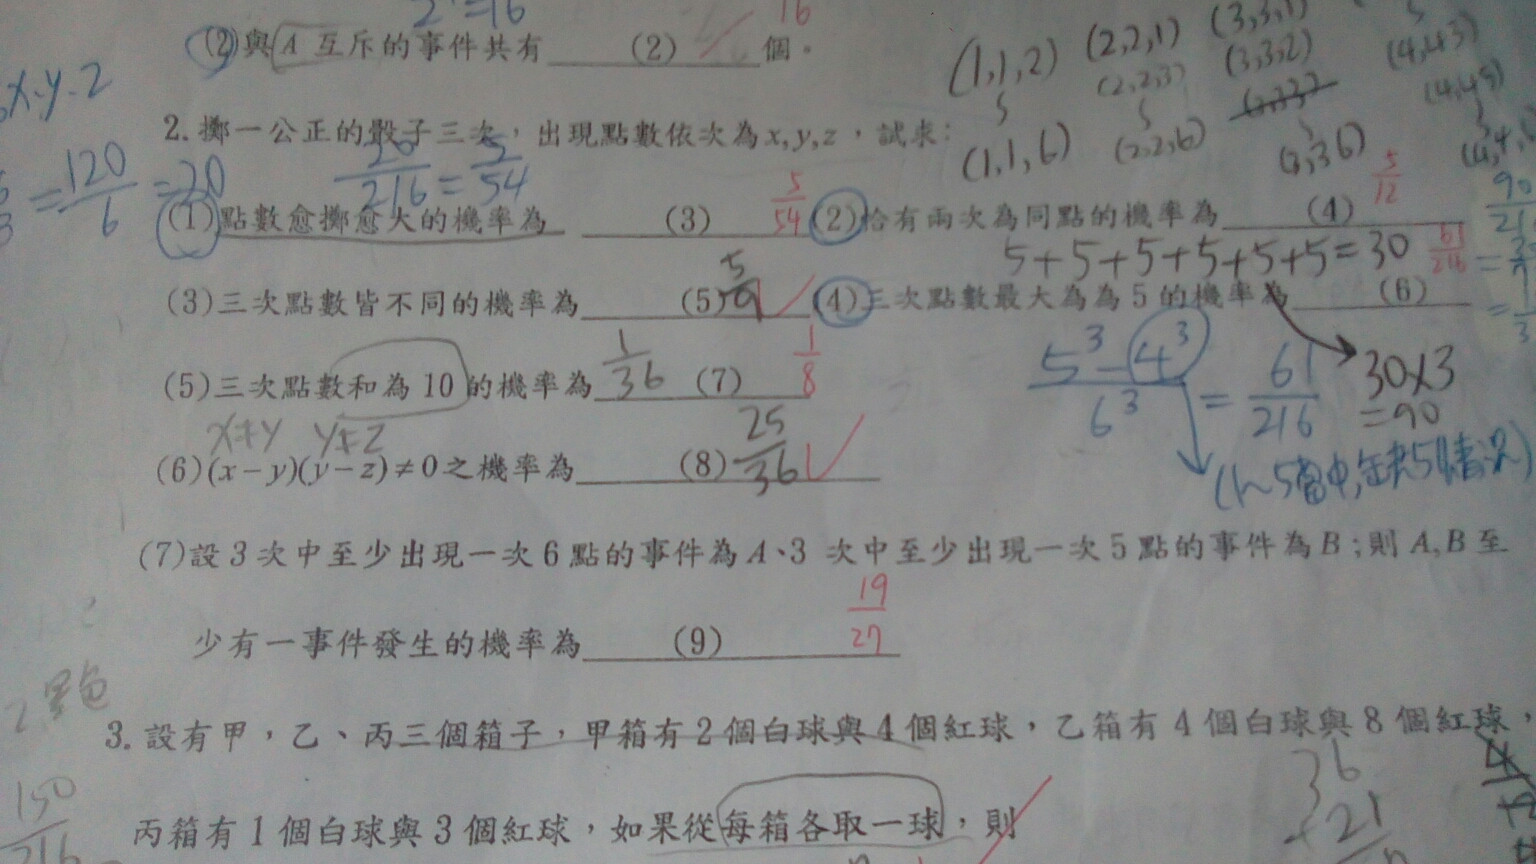 2 =16
16
(2)與A 互斥的事件共有 (2) 個。
(1,1,2) (2,2,1) (3,3,1)
(2,2,3) (3,3,2) (4,4,3)
(4,4,5)
x-y-z
2.擲一公正的骰子三次，出現點數依次為x,y,z，試求：
(1,1,6) (2,2,6) (3,3,6)
=120/6 =20
20/216 = 5/54
(1)點數愈擲愈大的機率為 (3) 5/54 (2)恰有兩次為同點的機率為 (4) 5/12
5+5+5+5+5+5=30 61/216
(3)三次點數皆不同的機率為 (5) 5/9 (4)三次點數最大為為5的機率為 (6)
5³-4³/6³ = 61/216
30×3
=90
(5)三次點數和為10的機率為 1/36 (7) 1/8
x≠y y≠z
(6)(x-y)(y-z)≠0之機率為 (8) 25/36
(7)設3次中至少出現一次6點的事件為A、3 次中至少出現一次5點的事件為B;則A,B至
少有一事件發生的機率為 (9) 19/27
3.設有甲，乙、丙三個箱子，甲箱有2個白球與4個紅球，乙箱有4個白球與8個紅球，
丙箱有1個白球與3個紅球，如果從每箱各取一球，則
36
21
150/216